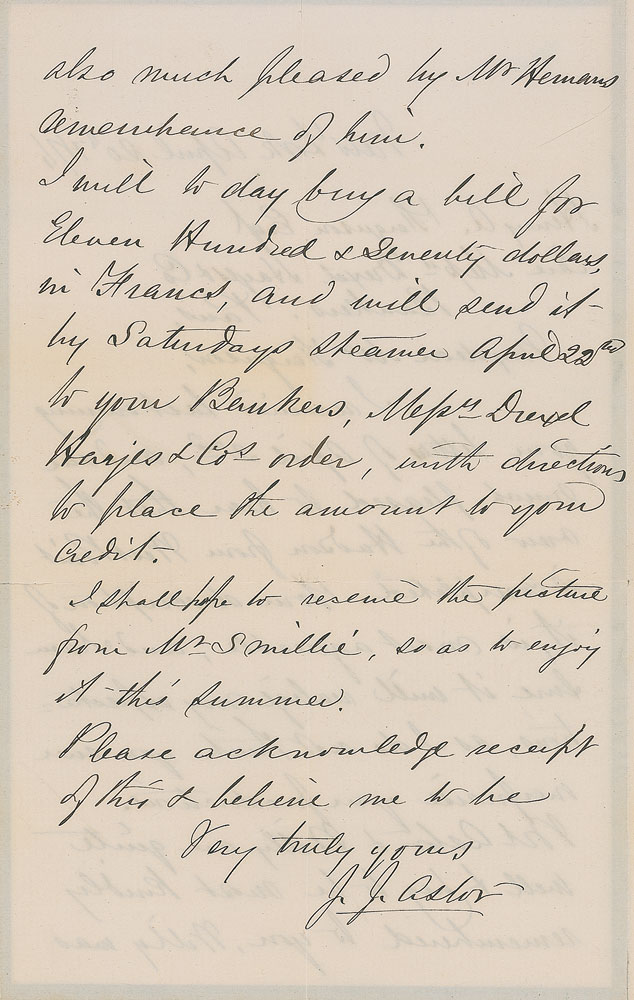 also much pleased by Mr Hemans
remembrance of him.
I will to day buy a bill for
Eleven Hundred & Seventy dollars,
in Francs, and will send it
by Saturdays steamer April 22nd
to your Bankers, Messrs Drexel
Harjes & Cos order, with directions
to place the amount to your
credit.
I shall hope to receive the picture
from Mr Smillie, so as to enjoy
it this summer.
Please acknowledge receipt
of this & believe me to be
Very truly yours
J. J. Astor